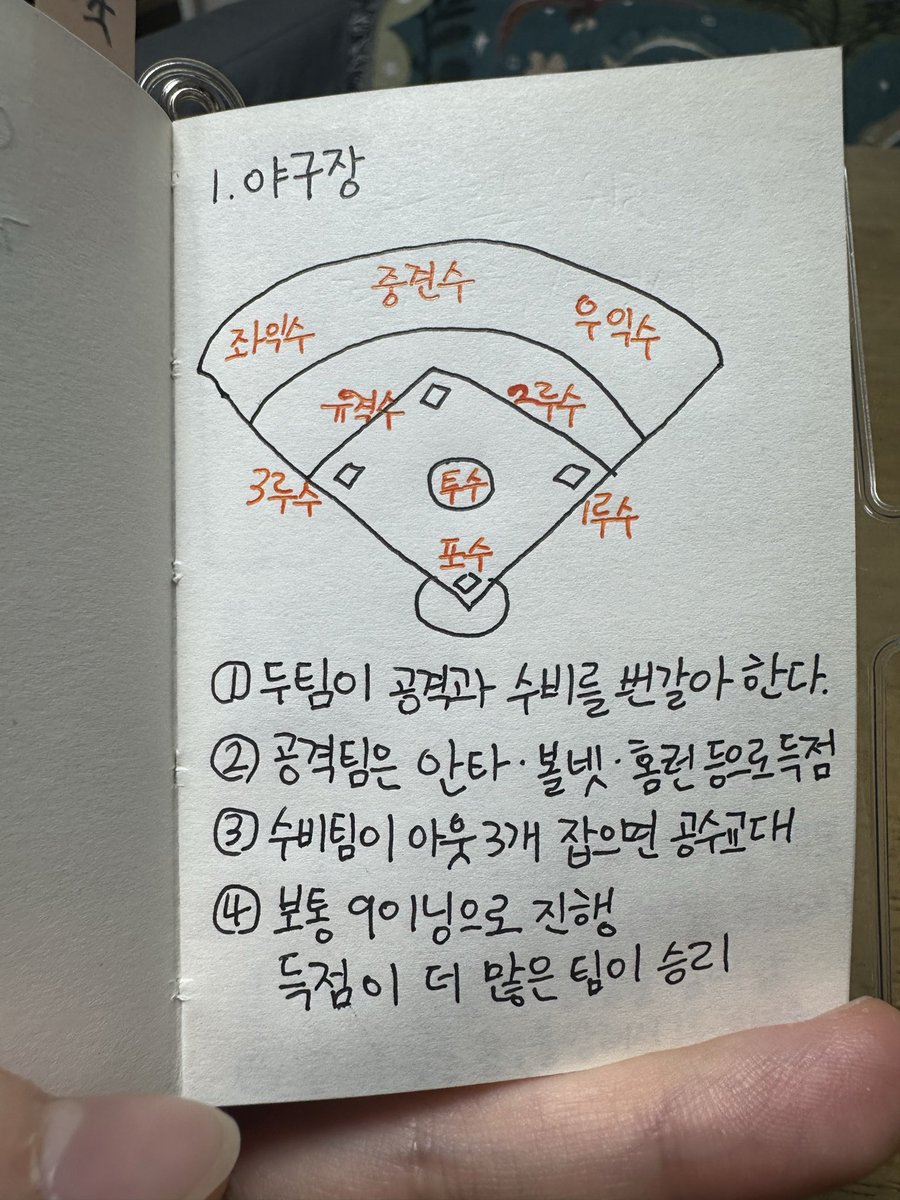 1. 야구장
중견수
좌익수
우익수
유격수
2루수
3루수
투수
1루수
포수
① 두팀이 공격과 수비를 번갈아 한다.
② 공격팀은 안타·볼넷·홈런 등으로 득점
③ 수비팀이 아웃 3개 잡으면 공수교대
④ 보통 9이닝으로 진행
득점이 더 많은 팀이 승리